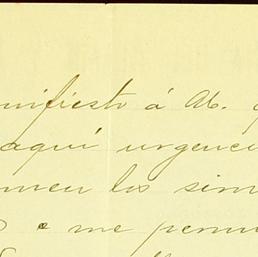 nifiesto á Ud.
aquí urgenci
men los sim
e me permi